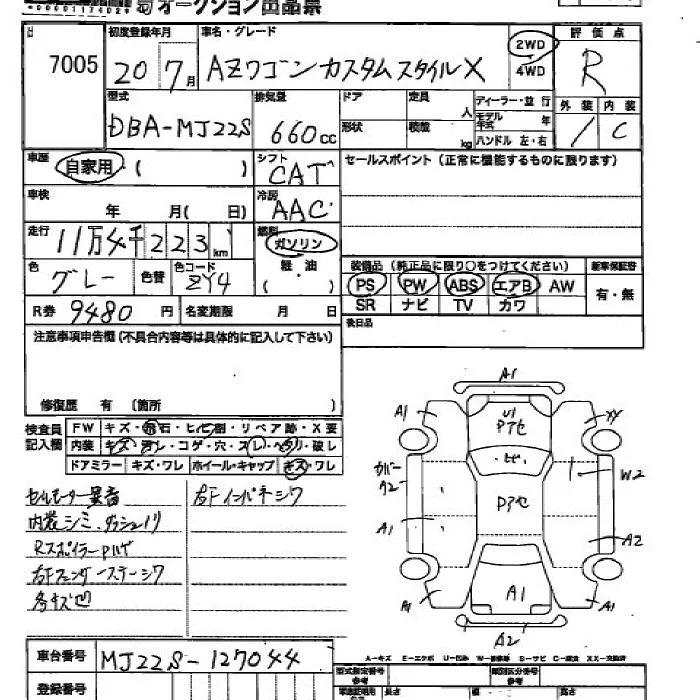 *00001174024*
オークション出品票
7005
初度登録年月
20 7月
車名・グレード
AZワゴン カスタムスタイルX
2WD
4WD
評価点
R
外装 内装
/ C
型式
DBA-MJ22S
排気量
660cc
ドア
形状
定員 人
積載 kg
ディーラー・並行
モデル年式 年
ハンドル 左・右
車歴
自家用・( )
シフト
CAT
セールスポイント(正常に機能するものに限ります)
車検
年 月( 日)
冷房
AAC
走行
11万4千223km
燃料
ガソリン
軽・油
( )
色
グレー
色替
色コード
ZY4
装備品(純正品に限り○をつけてください)
PS PW ABS エアB AW
SR ナビ TV カワ
新車保証書
有・無
R券 9480円
名変期限 月 日
後日品
注意事項申告欄(不具合内容等は具体的に記入して下さい)
修復歴 有 〔箇所 〕
検査員記入欄
FW キズ・飛石・ヒビ・樹・リペア跡・X要
内装 キズ・汚レ・コゲ・穴・スレ・ヘタリ・破レ
ドアミラー キズ・ワレ ホイール・キャップ キズ・ワレ
セルモーター異音
内装シミ、ダッシュ
Rスポイラー
右Fフェンダーステーシワ
各キズ凹
右Fインパネシワ
A1
A1
U1
Pアセ
XX
ヒビ
カバー
A2
W2
Pアセ
A1
A2
A1
A1
A1
A2
A-キズ E-エクボ U-凹み W-補修跡 S-サビ C-腐食 XX-交換済
車台番号
MJ22S-127044
登録番号
型式指定番号
参考
類別区分番号
参考
長さ 幅 高さ